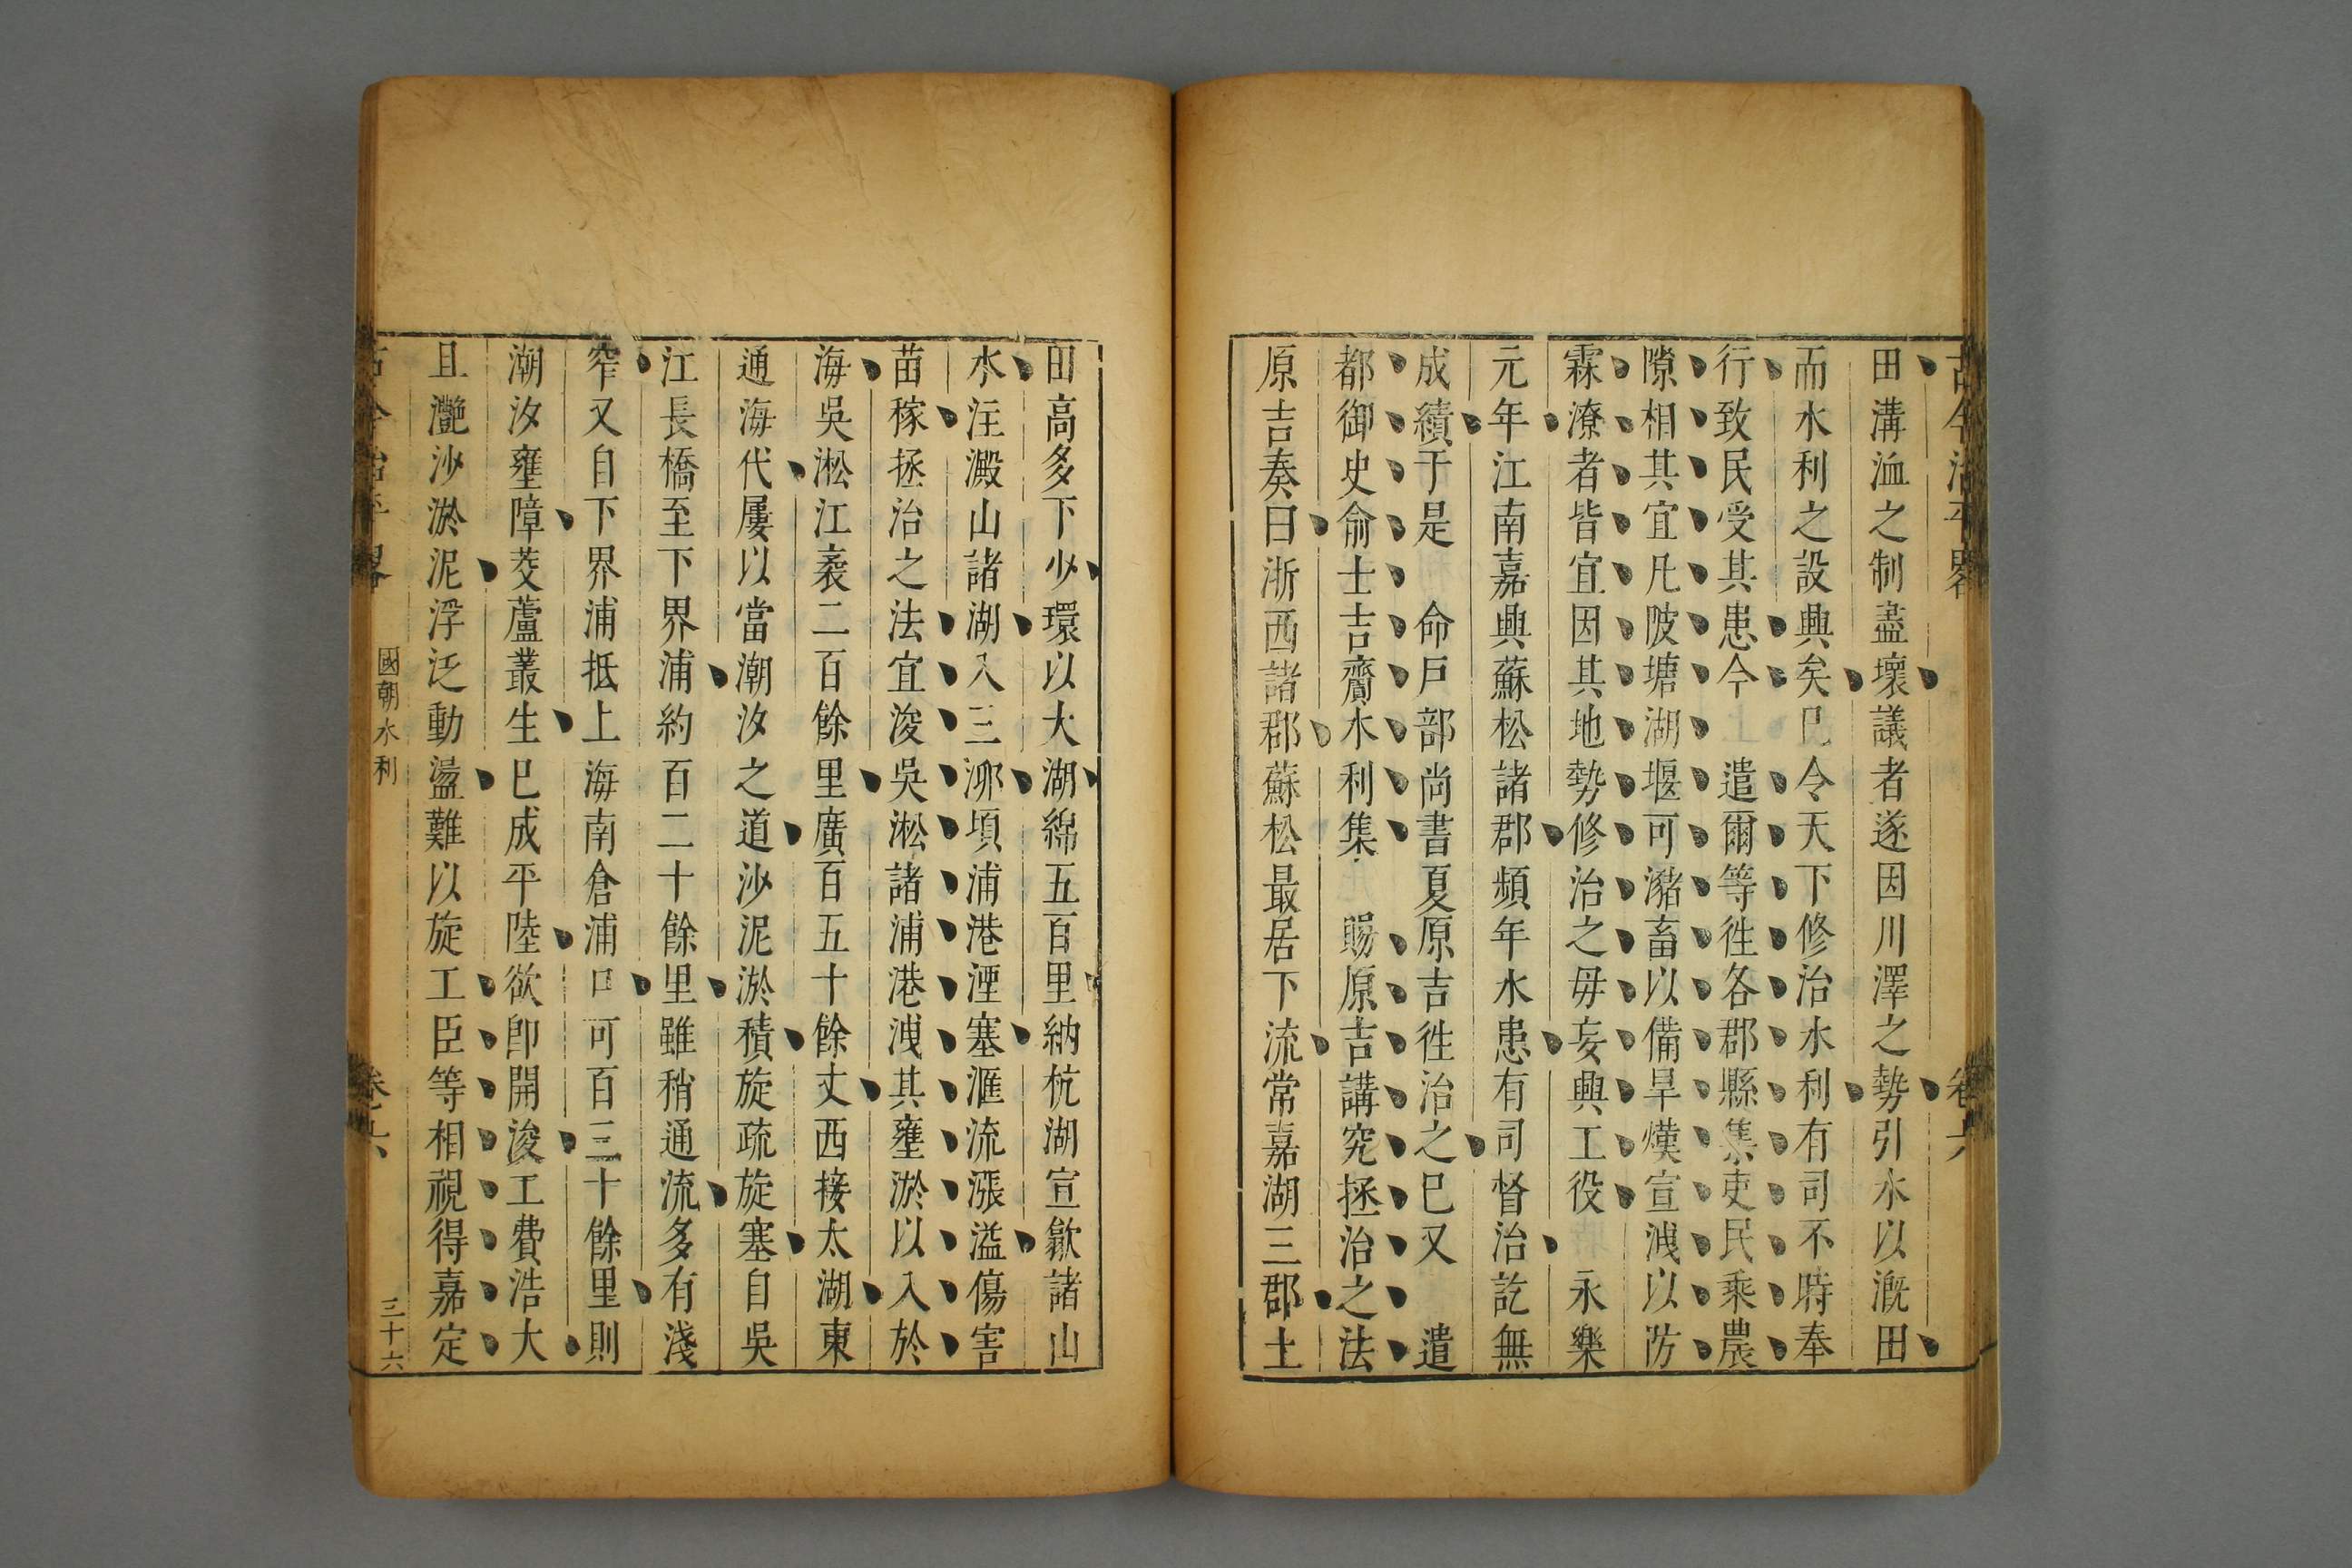 古今治平畧 卷六
田溝洫之制盡壞議者遂因川澤之勢引水以漑田
而水利之設興矣巳令天下修治水利有司不時奉
行致民受其患今 遣爾等徃各郡縣集吏民乘農
隙相其宜凡陂塘湖堰可瀦畜以備旱熯宣洩以防
霖潦者皆宜因其地勢修治之毋妄興工役 永樂
元年江南嘉興蘇松諸郡頻年水患有司督治訖無
成績于是 命戶部尚書夏原吉徃治之巳又 遣
都御史俞士吉齎水利集 賜原吉講究拯治之法
原吉奏曰浙西諸郡蘇松最居下流常嘉湖三郡土
田高多下少環以大湖綿五百里納杭湖宣歙諸山
水注澱山諸湖入三泖頃浦港湮塞滙流漲溢傷害
苗稼拯治之法宜浚吳淞諸浦港洩其壅淤以入於
海吳淞江袤二百餘里廣百五十餘丈西接太湖東
通海代屢以當潮汐之道沙泥淤積旋疏旋塞自吳
江長橋至下界浦約百二十餘里雖稍通流多有淺
窄又自下界浦抵上海南倉浦口可百三十餘里則
潮汐壅障茭蘆叢生巳成平陸欲卽開浚工費浩大
且灧沙淤泥浮泛動盪難以旋工臣等相視得嘉定
古今治平畧 國朝水利 卷之六 三十六